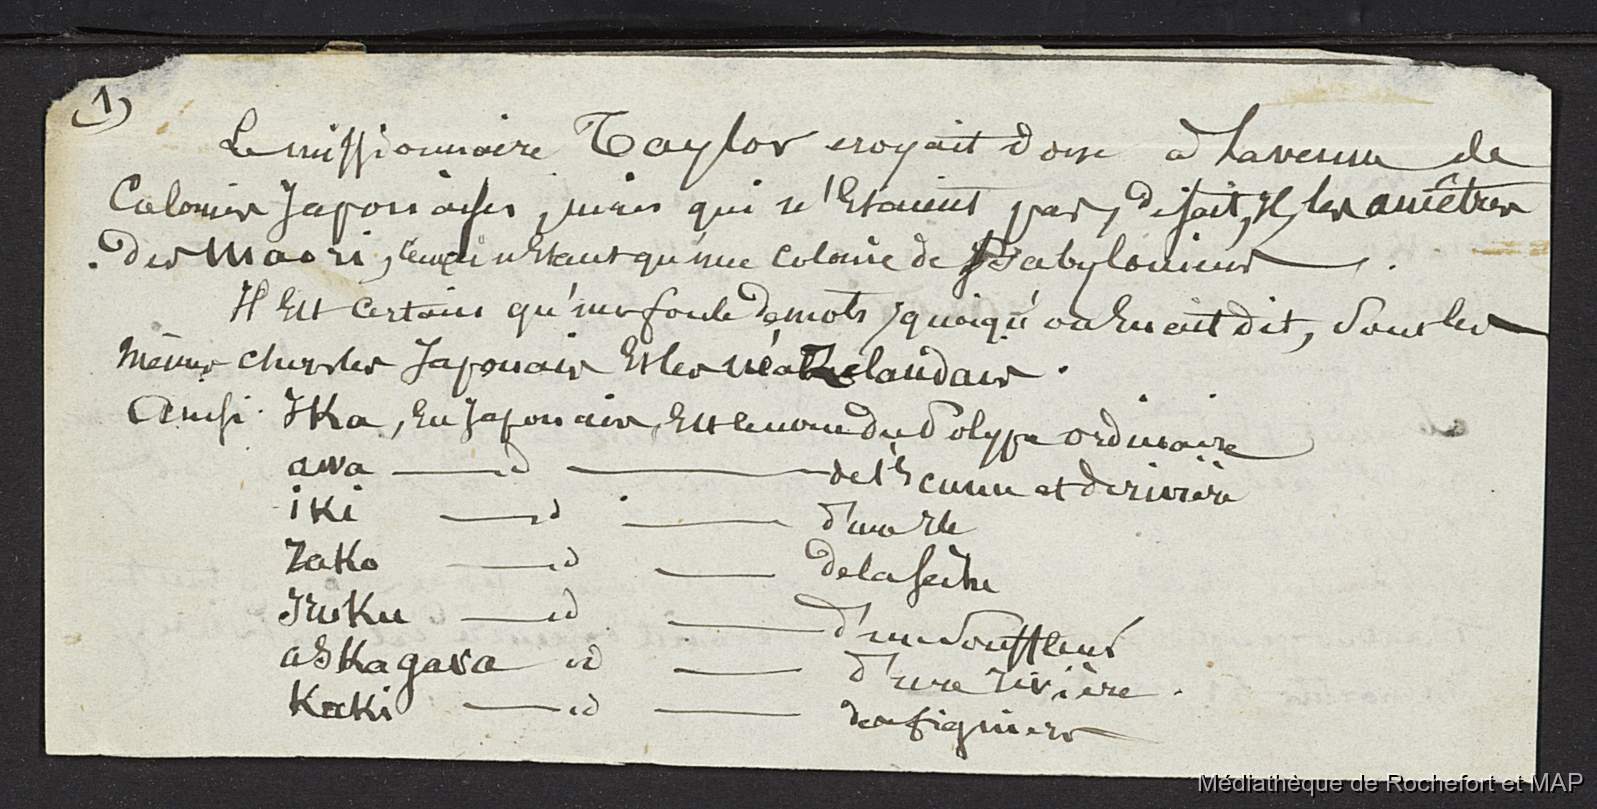 1)
Le missionnaire Taylor croyait donc à la venue de
Colonies Japonaises, mais qui n'Etaient pas, disait, il, les ancêtres
des Maori, ceux ci n'Etant qu'une colonie de Babyloniens.
Il Est certain qu'une foule de mots, quoiqu'on En ait dit, sont les
mêmes chez les Japonais Et les néo Zelandais.
Ainsi Ika, En Japonais, Est le nom du Polype ordinaire
awa — id — de l'Ecume et de rivière
iki — id — d'une
Zako — id — de la seiche
Iruku — id — d'un souffleur
asKagava id — d'une rivière.
Kaki — id — des figuiers
Médiathèque de Rochefort et MAP